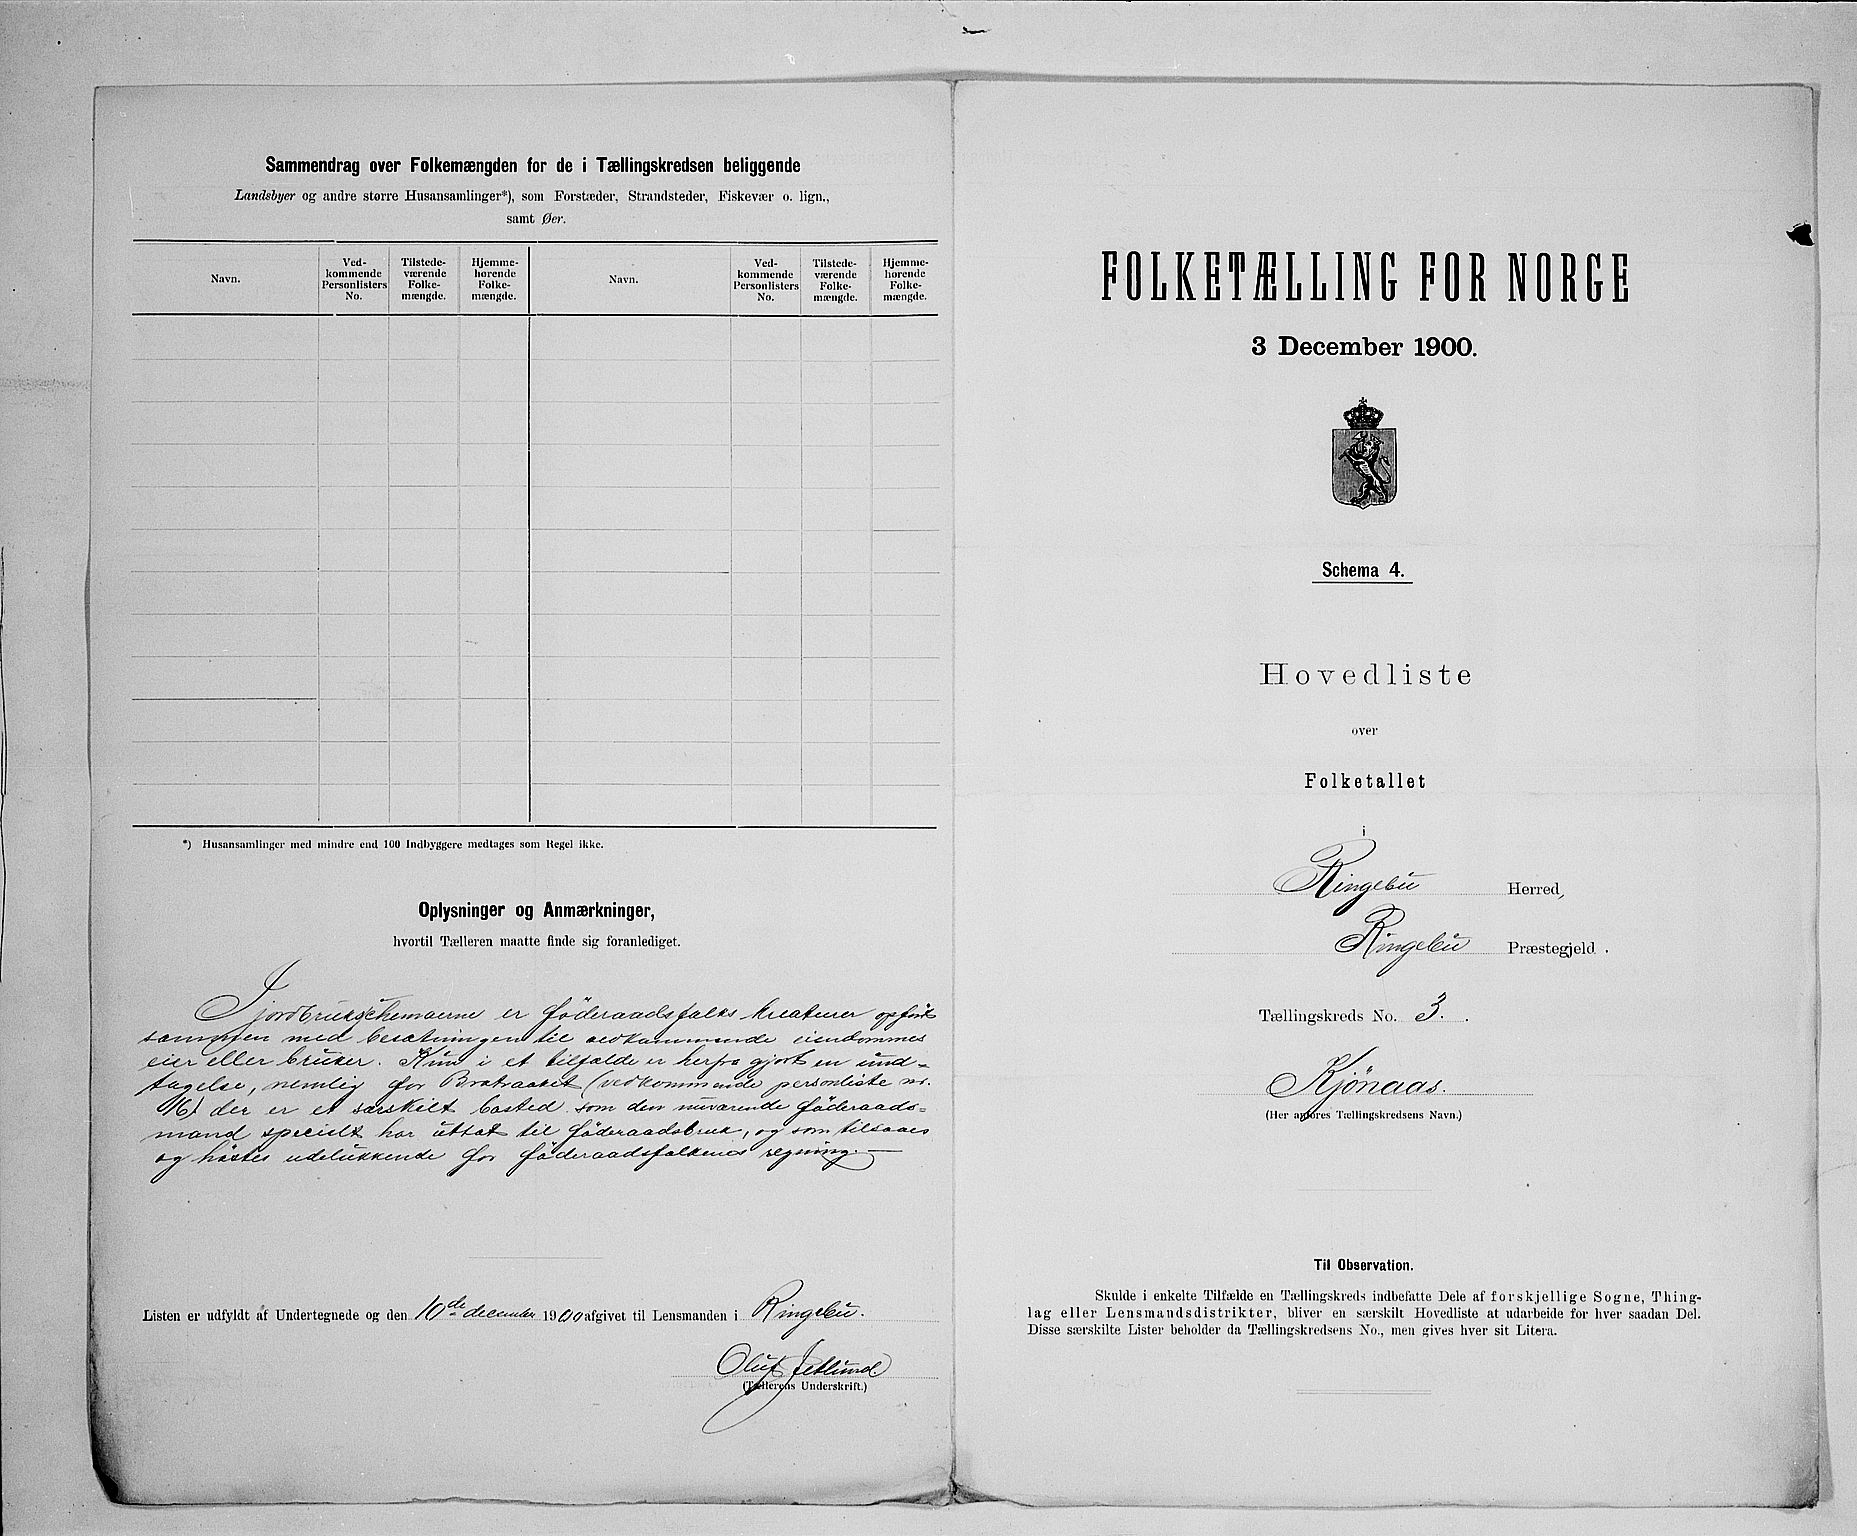 Sammendrag over Folkemængden for de i Tællingskredsen beliggende
Landsbyer og andre større Husansamlinger*), som Forstæder, Strandsteder, Fiskevær o. lign.,
samt Øer.
Navn.
Ved-
kommende
Personlisters
No.
Tilstede-
værende
Folke-
mængde.
Hjemme-
hørende
Folke-
mængde.
Navn.
Ved-
kommende
Personlisters
No.
Tilstede-
værende
Folke-
mængde.
Hjemme-
hørende
Folke-
mængde.
*) Husansamlinger med mindre end 100 Indbyggere medtages som Regel ikke.
Oplysninger og Anmærkninger,
hvortil Tælleren maatte finde sig foranlediget.
I jordbruksskemaerne er föderaadsfolks kreaturer opfört
sammen med besætningen til vedkommende eiendommes
eier eller bruker. Kun i et tilfælde er herfra gjort en und-
tagelse, nemlig for Bratraabet (vedkommende personliste nr.
16) der er et særskilt bosted som den nuværende föderaads-
mand specielt har uttat til föderaadsbruk, og som tilsaaes
og höstes udelukkende for föderaadsfolkenes regning. —
Listen er udfyldt af Undertegnede og den 10de december 1900 afgivet til Lensmanden i Ringebu.
Oluf Jetlund
(Tællerens Underskrift.)
FOLKETÆLLING FOR NORGE
3 December 1900.
Schema 4.
Hovedliste
over
Folketallet
i
Ringebu Herred,
Ringebu Præstegjeld.
Tællingskreds No. 3.
Kjönaas.
(Her anføres Tællingskredsens Navn.)
Til Observation.
Skulde i enkelte Tilfælde en Tællingskreds indbefatte Dele af forskjellige Sogne, Thing-
lag eller Lensmandsdistrikter, bliver en særskilt Hovedliste at udarbeide for hver saadan Del.
Disse særskilte Lister beholder da Tællingskredsens No., men gives hver sit Litera.